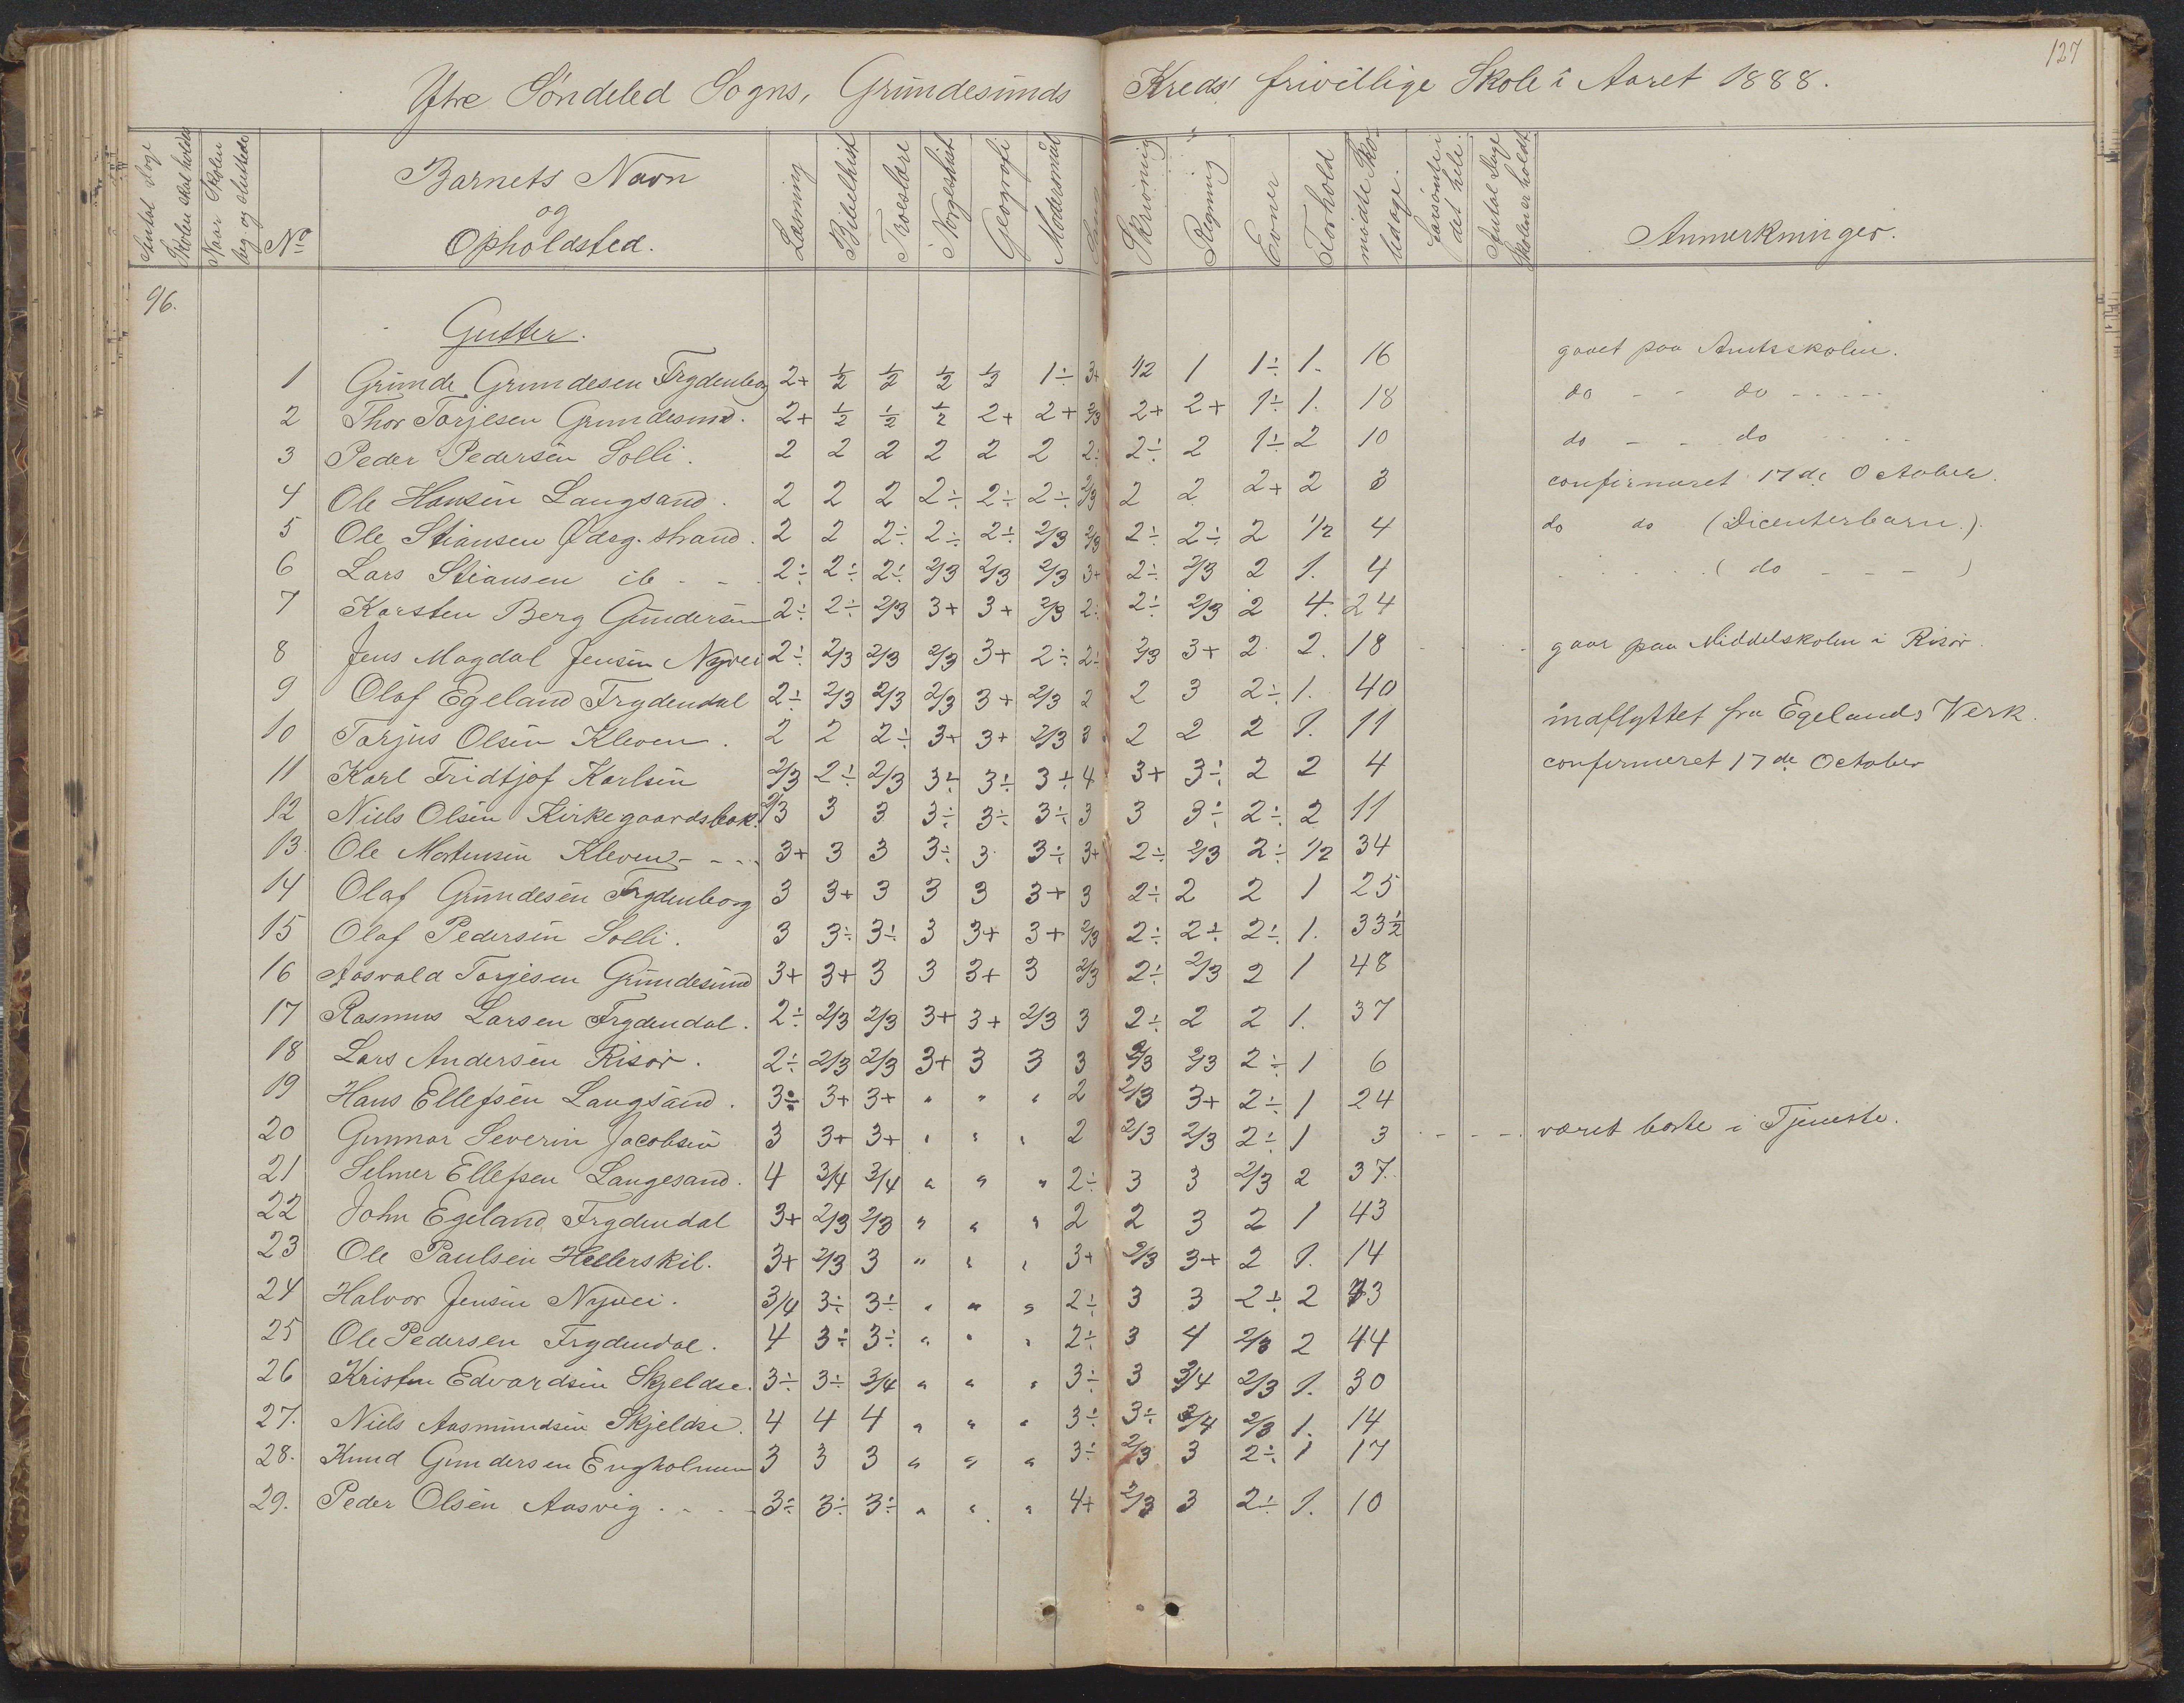 127
Ytre Söndeled Sogns, Grundesunds Kreds' frivillige Skole i Aaret 1888.
Antal Dage Skolen skal holdes
Naar Skolen beg. og sluttede
No
Barnets Navn
og
Opholdsted.
Læsning
Bibelhist
Troeslære
Norgeshist
Geografi
Modersmål
Sang
Skrivning
Regning
Evner
Forhold
mødte Skoledage.
forsömte i det hele.
Antal Dage Skolen er holdt
Anmerkninger.
96.
Gutter.
1 Grunde Grundesen Frydenborg 2+ ½ ½ ½ ½ 1÷ 3+ 1/2 1 1÷ 1. 16 gaaet paa Amtsskolen.
2 Thor Torjesen Grundesund. 2+ ½ ½ ½ 2+ 2+ 2/3 2+ 2+ 1÷ 1. 18 do - - do - - - - -
3 Peder Pedersen Solli. 2 2 2 2 2 2 2÷ 2÷ 2 1÷ 2 10 do - - do - - - -
4 Ole Hansen Langsand. 2 2 2 2÷ 2÷ 2÷ 2/3 2 2 2+ 2 3 confirmeret 17de October.
5 Ole Stiansen Ødeg. strand. 2 2 2÷ 2÷ 2÷ 2/3 2/3 2÷ 2÷ 2 1/2 4 do do (Dicenterbarn.)
6 Lars Stiansen ib - - 2÷ 2÷ 2÷ 2/3 2/3 2/3 3+ 2÷ 2/3 2 1. 4 - - - - - ( do - - - )
7 Karsten Berg Gundersen 2÷ 2÷ 2/3 3+ 3+ 2/3 2÷ 2÷ 2/3 2 4. 24
8 Jens Magdal Jensen Nyvei 2÷ 2/3 2/3 2/3 3+ 2÷ 2÷ 2/3 3+ 2 2. 18 gaar paa Middelskolen i Risör.
9 Olaf Egeland Frydendal 2÷ 2/3 2/3 2/3 3+ 2/3 2 2 3 2÷ 1. 40
10 Torjus Olsen Kleven. 2 2 2÷ 3+ 3+ 2/3 3 2 2 2 1. 11 indflyttet fra Egelands Verk.
11 Karl Fridtjof Karlsen 2/3 2÷ 2/3 3÷ 3÷ 3÷ 4 3+ 3÷ 2 2 4 confirmeret 17de October
12 Niels Olsen Kirkegaardsbak. 2/3 3 3 3÷ 3÷ 3÷ 3 3 3÷ 2÷ 2 11
13. Ole Mortensen Kleven - - - 3+ 3 3 3÷ 3 3÷ 3+ 2÷ 2/3 2÷ 1/2 34
14 Olaf Grundesen Frydenborg 3 3+ 3 3 3 3+ 3 2÷ 2 2 1 25
15 Olaf Pedersen Solli. 3 3÷ 3÷ 3 3+ 3+ 2/3 2÷ 2÷ 2÷ 1. 33½
16 Aasvald Torjesen Grundesund 3+ 3+ 3 3 3+ 3 2/3 2÷ 2/3 2 1 48
17 Rasmus Larsen Frydendal. 2÷ 2/3 2/3 3+ 3+ 2/3 3 2÷ 2 2 1. 37
18 Lars Andersen Risör. 2÷ 2/3 2/3 3+ 3 3 3 2/3 2/3 2÷ 1 6
19 Hans Ellefsen Langsand. 3÷ 3+ 3+ " " " 2 2/3 3+ 2÷ 1 24
20 Gunnar Severin Jacobsen 3 3+ 3+ " " " 2 2/3 2/3 2÷ 1 3 - - - været borte i Tjeneste.
21 Selmer Ellefsen Langesand. 4 3/4 3/4 " " " 2÷ 3 3 2/3 2 37.
22 John Egeland Frydendal 3+ 2/3 2/3 " " " 2 2 3 2 1 43
23 Ole Paulsen Hellerskil. 3+ 2/3 3 " " " 3+ 2/3 3+ 2 1. 14
24 Halvor Jensen Nyvei. 3/4 3÷ 3÷ " " " 2÷ 3 3 2÷ 2
25 Ole Pedersen Frydendal. 4 3÷ 3÷ " " " 2÷ 3 4 2/3 2 44
26 Kristen Edvardsen Skjeldsø. 3÷ 3÷ 3/4 " " " 3÷ 3 3/4 2/3 1. 30
27. Niels Aasmundsen Skjeldsø. 4 4 4 " " " 3÷ 3÷ 3/4 2/3 1. 14
28. Knud Gundersen Engholmen 3 3 3 " " " 3÷ 2/3 3 2÷ 1 17
29. Peder Olsen Aasvig. - - - 3÷ 3÷ 3÷ " " " 4+ 2/3 3 2÷ 1. 10